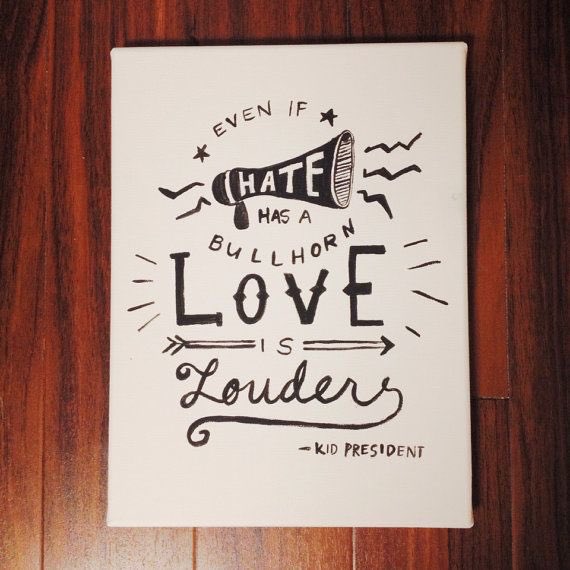 EVEN IF
HATE
HAS A
BULLHORN
LOVE
IS
Louder
- KID PRESIDENT